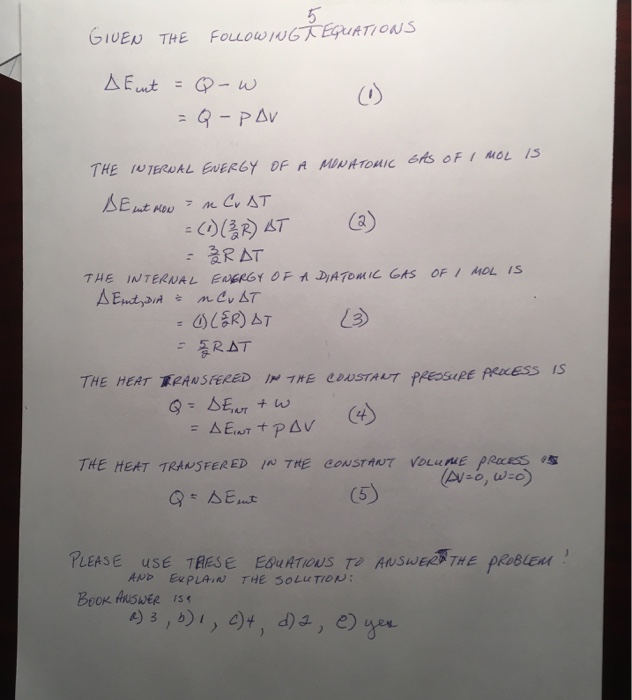 5
GIVEN THE FOLLOWING ^ EQUATIONS
ΔEint = Q - W
(1)
= Q - PΔV
THE INTERNAL ENERGY OF A MONATOMIC GAS OF 1 MOL IS
ΔEint MON = n Cv ΔT
= (1)(3/2 R) ΔT (2)
= 3/2 R ΔT
THE INTERNAL ENERGY OF A DIATOMIC GAS OF 1 MOL IS
ΔEint, DIA = n Cv ΔT
= (1)(5/2 R) ΔT (3)
= 5/2 R ΔT
THE HEAT TRANSFERED IN THE CONSTANT PRESSURE PROCESS IS
Q = ΔEINT + W
(4)
= ΔEINT + PΔV
THE HEAT TRANSFERED IN THE CONSTANT VOLUME PROCESS IS
(ΔV=0, W=0)
Q = ΔEint (5)
PLEASE USE THESE EQUATIONS TO ANSWER THE PROBLEM!
AND EXPLAIN THE SOLUTION:
BOOK ANSWER IS:
a) 3, b) 1, c) 4, d) 2, e) yes